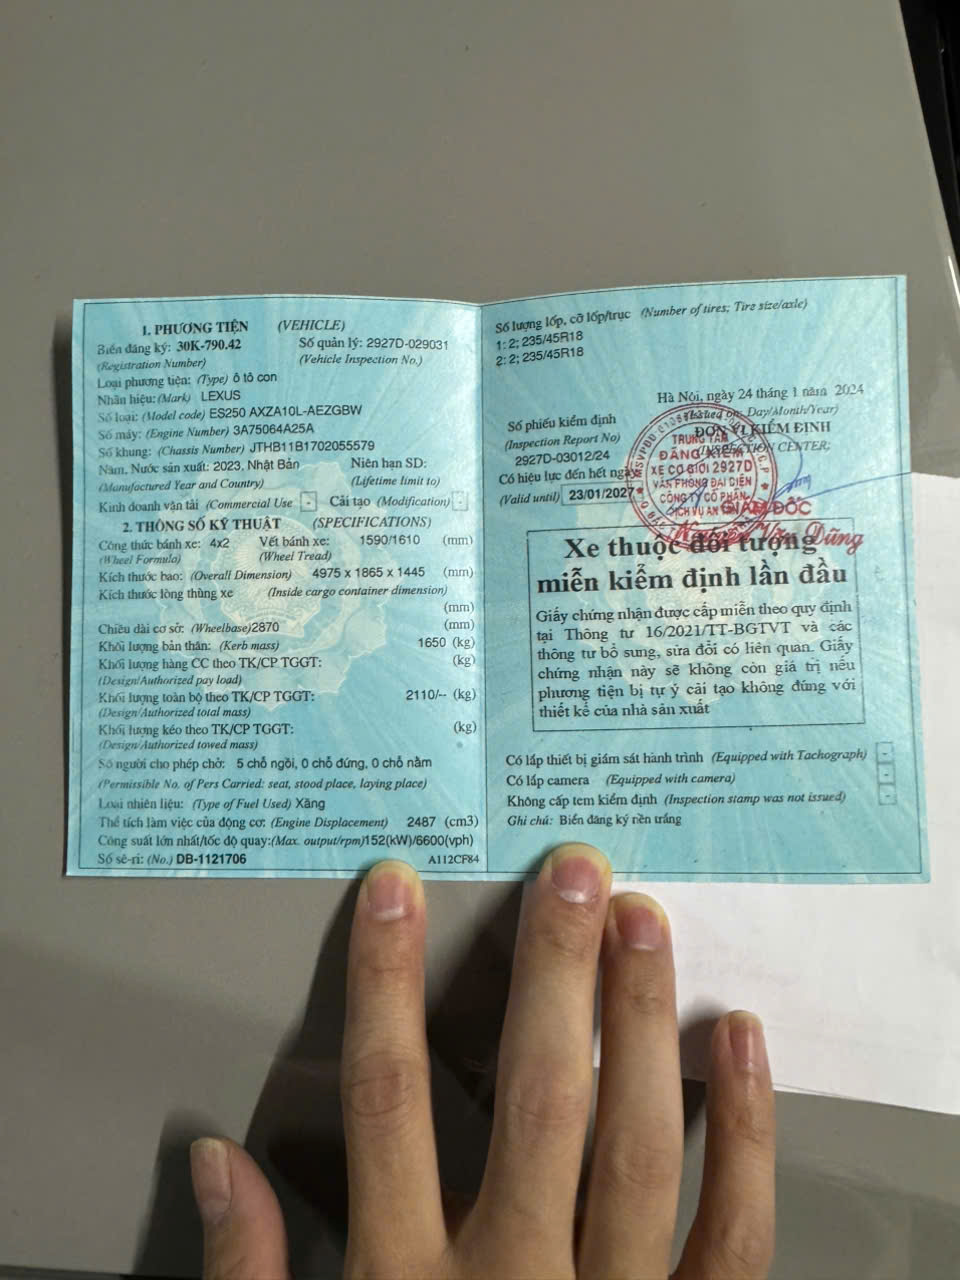 1. PHƯƠNG TIỆN (VEHICLE)
Biển đăng ký: 30K-790.42 Số quản lý: 2927D-029031
(Registration Number) (Vehicle Inspection No.)
Loại phương tiện: (Type) Ô tô con
Nhãn hiệu: (Mark) LEXUS
Số loại: (Model code) ES250 AXZA10L-AEZGBW
Số máy: (Engine Number) 3A75064A25A
Số khung: (Chassis Number) JTHB11B1702055579
Năm, Nước sản xuất: 2023, Nhật Bản Niên hạn SD:
(Manufactured Year and Country) (Lifetime limit to)
Kinh doanh vận tải (Commercial Use - Cải tạo (Modification) -
2. THÔNG SỐ KỸ THUẬT (SPECIFICATIONS)
Công thức bánh xe: 4x2 Vết bánh xe: 1590/1610 (mm)
(Wheel Formula) (Wheel Tread)
Kích thước bao: (Overall Dimension) 4975 x 1865 x 1445 (mm)
Kích thước lòng thùng xe (Inside cargo container dimension)
(mm)
Chiều dài cơ sở: (Wheelbase) 2870 (mm)
Khối lượng bản thân: (Kerb mass) 1650 (kg)
Khối lượng hàng CC theo TK/CP TGGT: (kg)
(Design/Authorized pay load)
Khối lượng toàn bộ theo TK/CP TGGT: 2110/-- (kg)
(Design/Authorized total mass)
Khối lượng kéo theo TK/CP TGGT: (kg)
(Design/Authorized towed mass)
Số người cho phép chở: 5 chỗ ngồi, 0 chỗ đứng, 0 chỗ nằm
(Permissible No. of Pers Carried: seat, stood place, laying place)
Loại nhiên liệu: (Type of Fuel Used) Xăng
Thể tích làm việc của động cơ: (Engine Displacement) 2487 (cm3)
Công suất lớn nhất/tốc độ quay:(Max. output/rpm)152(kW)/6600(vph)
Số sê-ri: (No.) DB-1121706 A112CF84
Số lượng lốp, cỡ lốp/trục (Number of tires; Tire size/axle)
1: 2; 235/45R18
2: 2; 235/45R18
Hà Nội, ngày 24 tháng 1 năm 2024
(Issued on: Day/Month/Year)
Số phiếu kiểm định ĐƠN VỊ KIỂM ĐỊNH
(Inspection Report No) (INSPECTION CENTER)
2927D-03012/24
Có hiệu lực đến hết ngày
(Valid until) 23/01/2027
TRUNG TÂM
ĐĂNG KIỂM
XE CƠ GIỚI 2927D
VĂN PHÒNG ĐẠI DIỆN
CÔNG TY CỔ PHẦN
DỊCH VỤ AN
GIÁM ĐỐC
Nguyễn Văn Dũng
Xe thuộc đối tượng
miễn kiểm định lần đầu
Giấy chứng nhận được cấp miễn theo quy định
tại Thông tư 16/2021/TT-BGTVT và các
thông tư bổ sung, sửa đổi có liên quan. Giấy
chứng nhận này sẽ không còn giá trị nếu
phương tiện bị tự ý cải tạo không đúng với
thiết kế của nhà sản xuất
Có lắp thiết bị giám sát hành trình (Equipped with Tachograph) -
Có lắp camera (Equipped with camera) -
Không cấp tem kiểm định (Inspection stamp was not issued) -
Ghi chú: Biển đăng ký nền trắng